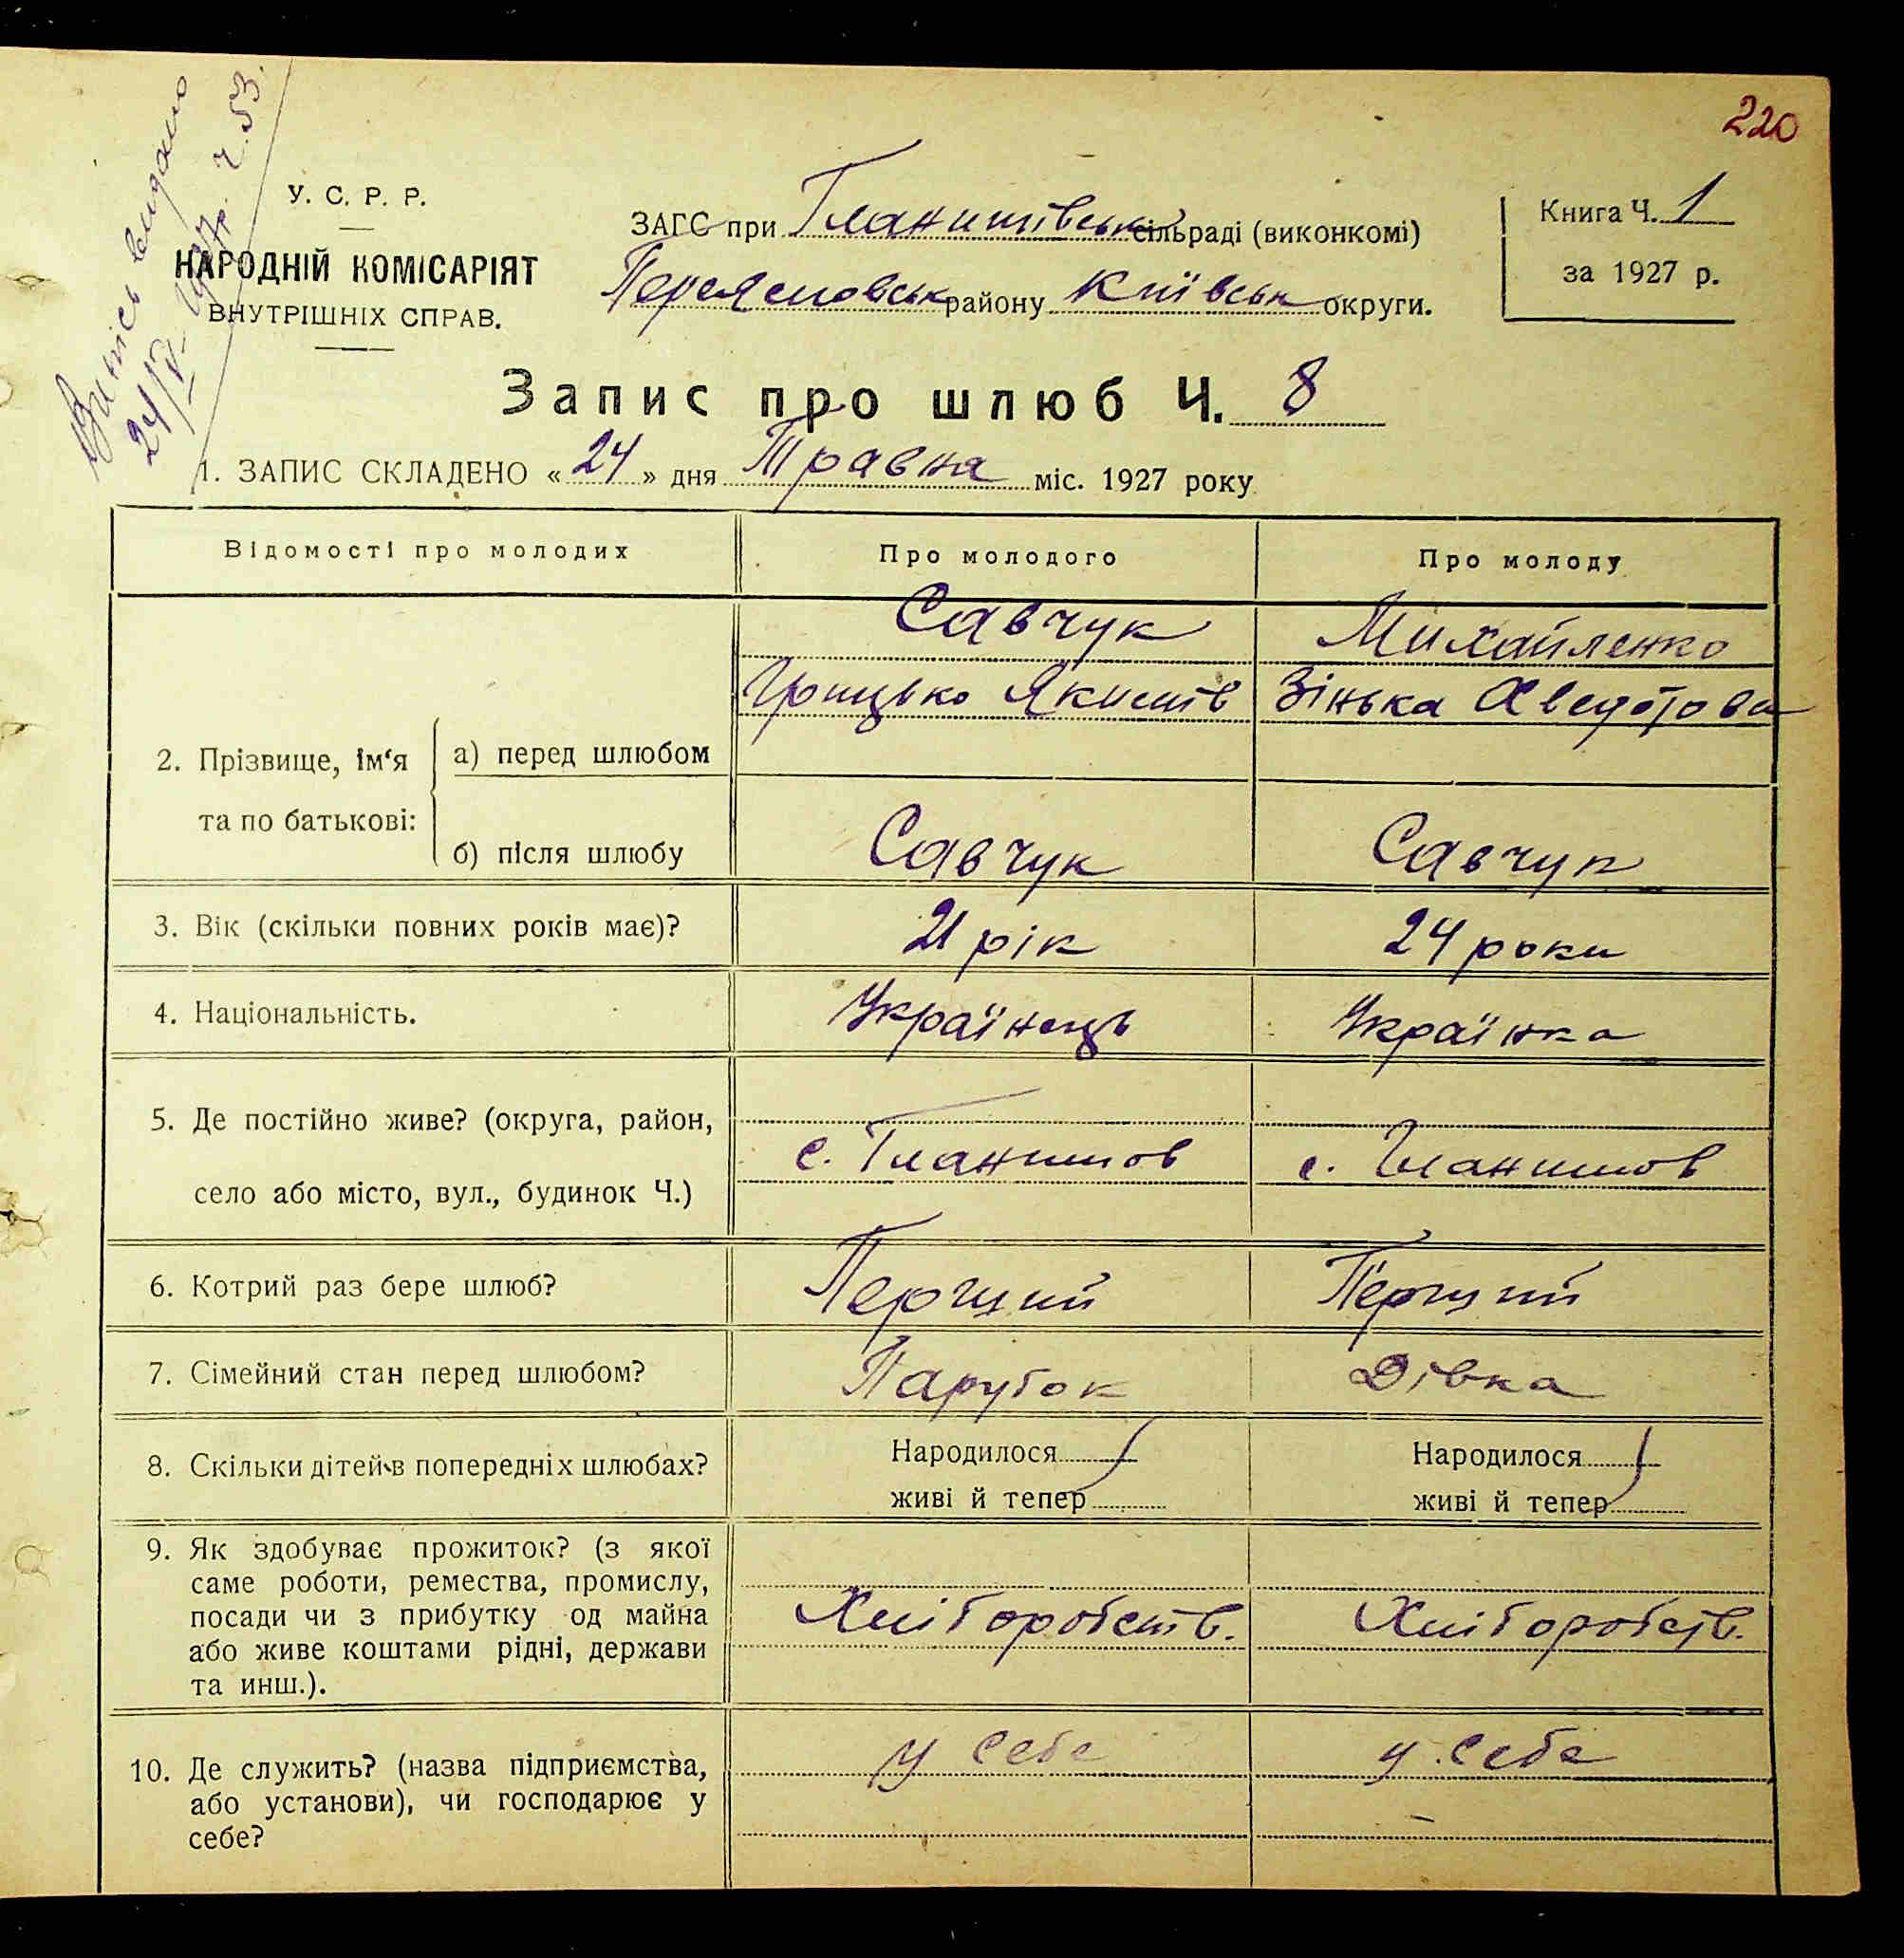 220
Випись видано
24/V-1927р. Ч. 53.
У. С. Р. Р.
НАРОДНІЙ КОМІСАРІЯТ
ВНУТРІШНІХ СПРАВ.
ЗАГС при Гланишівськ сільраді (виконкомі)
Переяславськ району Київськ округи.
Книга Ч. 1
за 1927 р.
Запис про шлюб Ч. 8
1. ЗАПИС СКЛАДЕНО «24» дня Травня міс. 1927 року
Відомості про молодих
Про молодого
Про молоду
2. Прізвище, ім‘я
та по батькові:
а) перед шлюбом
Савчук
Грицько
Михайленко
Зінька Авдотова
б) після шлюбу
Савчук
Савчук
3. Вік (скільки повних років має)?
21 рік
24 роки
4. Національність.
Українець
Українка
5. Де постійно живе? (округа, район,
село або місто, вул., будинок Ч.)
с. Гланишов
с. Гланишов
6. Котрий раз бере шлюб?
Перший
Перший
7. Сімейний стан перед шлюбом?
Парубок
Дівка
8. Скільки дітей в попередніх шлюбах?
Народилося
живі й тепер
Народилося
живі й тепер
9. Як здобуває прожиток? (з якої
саме роботи, ремества, промислу,
посади чи з прибутку од майна
або живе коштами рідні, держави
та инш.).
Хліборобств.
Хліборобств.
10. Де служить? (назва підприємства,
або установи), чи господарює у
себе?
у себе
у себе